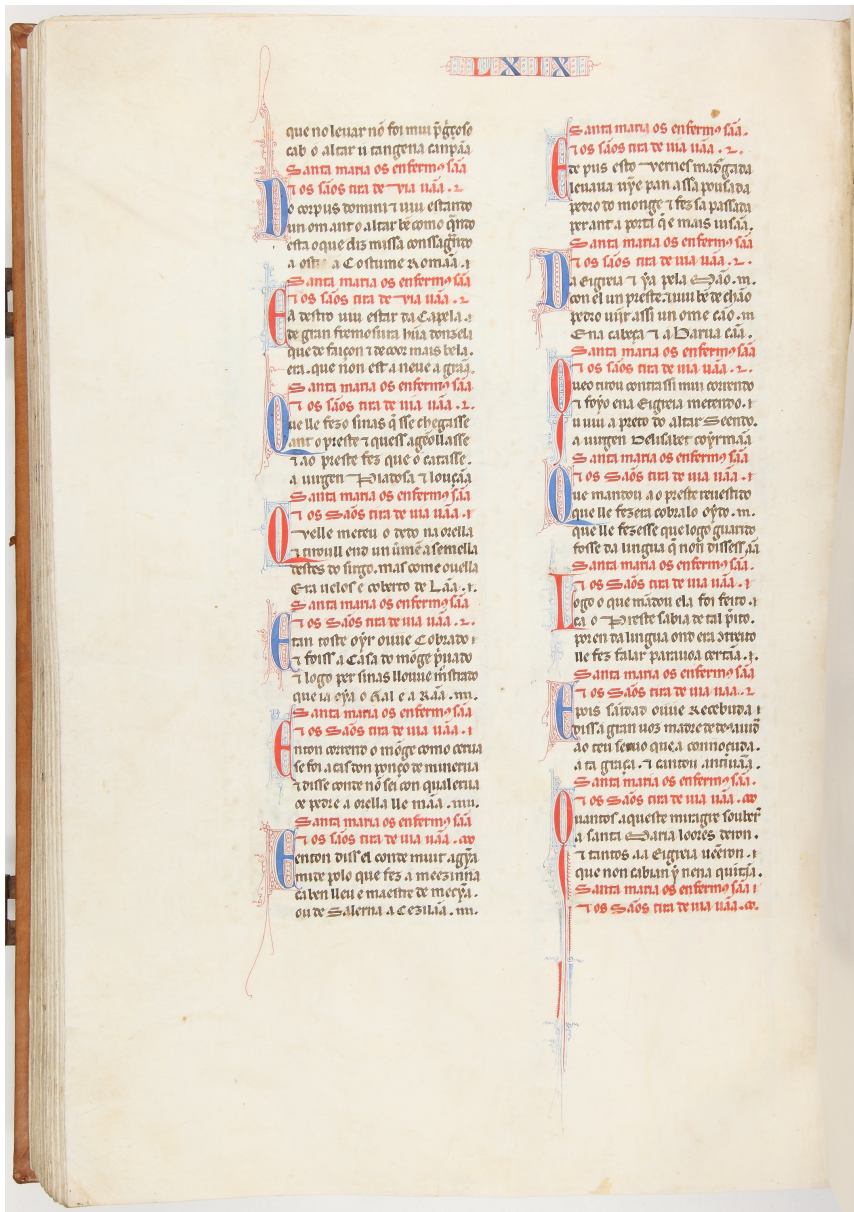 LXIX
que no leuar nō foi mui p̄g̃coso
cab o altar u tangena canpāa
Santa maria os enfermos sāa
⁊ os sãos tira de via uāa. ⁊
Do corpus domini ⁊ uiu estando
un om ant o altar bē como q̃ndo
esta o que diz missa conssagr̃ndo
a ostia a Costume Romāa. ⁊
Santa maria os enfermos sāa
⁊ os sãos tira de via uāa. ⁊
Ea destro uiu estar da Capela. ⁊
de gran fremosura hũa donzela
que de faiçon ⁊ de coor mais bela.
era. que non est a neue a grāa.
Santa maria os enfermos sāa
⁊ os sãos tira de uia uāa. ⁊.
Que lle fezo sinas q̄ sse chegasse
ant o preste ⁊ quess agēollasse
⁊ ao preste fez que o catasse.
a uirgen Piadosa ⁊ louçāa
Santa maria os enfermos sāa
⁊ os Sãos tira de uia uāa. ⁊
Quelle meteu o dedo na orella
⁊ tiroull end un ūmē a semella
destes do sirgo. mas come ouella
Era uelos e coberto de Lāa. ⁊.
Santa maria os enfermos sāa
⁊ os Sãos tira de uia uāa. ⁊.
Etan toste oyr ouue Cobrado ⁊
⁊ foiss a Casa do mōge p̄uado
⁊ logo per sinas llouue mōstrado
que ia oya o Gal e a Rāa. m.
Santa maria os enfermos sāa
⁊ os Sãos tira de uia uāa. ⁊
Enton correndo o mōge como cerua
se foi a cas don ponço de minerua
⁊ disse conde nō sei con qual erua
oe pedre a orella lle māa. mu.
Santa maria os enfermos sāa
⁊ os Sãos tira de uia uāa. co
Eenton diss el conde muit agỹa
mide polo que fez a meezinna
ca ben lleu e maestre de mecỹa.
ou de Salerna a Cezilāa. m.
Santa maria os enfermos sāa.
⁊ os sãos tira de uia uāa. ⁊.
Ede pus esto vernes mad̄gada
leuaua uỹe pan assa pousada
pedro do monge ⁊ fez sa passada
per ant a porta q̄ e mais iusāa.
Santa maria os enfermos sāa
⁊ os sãos tira de uia uāa. ⁊.
Da Eigreia ⁊ ỹa pela Mão. m.
con el un preste. ⁊ uiu bē de chāo
pedro uijr assi un ome cāo. m
Ena cabeça ⁊ a Barua cāa.
Santa maria os enfermos sāa
⁊ os sãos tira de uia uāa. ⁊.
Queo tirou contra ssi mui correndo
⁊ foyo ena Eigreia metendo. ⁊
u uiu a preto do altar Seendo.
a uirgen Delisabet coỹrmāa
Santa maria os enfermos sāa. ⁊
⁊ os Sãos tira de uia uāa. ⁊.
Que mandou a o preste reuestido
que lle fezera cobralo oydo. m.
que lle fezesse que logo guarido
fosse da lingua q̄ non dissess āa
Santa maria os enfermos sāa.
⁊ os Sãos tira de uia uāa. ⁊
Logo o que mādou ela foi feito. ⁊
ca o Preste sabia de tal p̄ito.
poren da lingua ond era ɔtreito
lle fez falar parauoa certāa. ⁊.
Santa maria os enfermos sāa
⁊ os Sãos tira de uia uāa. ⁊
Epois saudad ouue Recebuda ⁊
dissa gran uoz madre de deus aiud
ao teu seruo que a connoçuda.
a ta graça. ⁊ cantou antiuāa.
Santa maria os enfermos sāa.
⁊ os Sãos tira de uia uāa. co
Quantos aqueste miragre souber̄
a santa Maria loores deron.
⁊ tantos aa Eigreia uēeron. ⁊
que non cabian ỹ nena quintāa.
Santa maria os enfermos sāa ⁊
⁊ os Sãos tira de uia uāa. co.